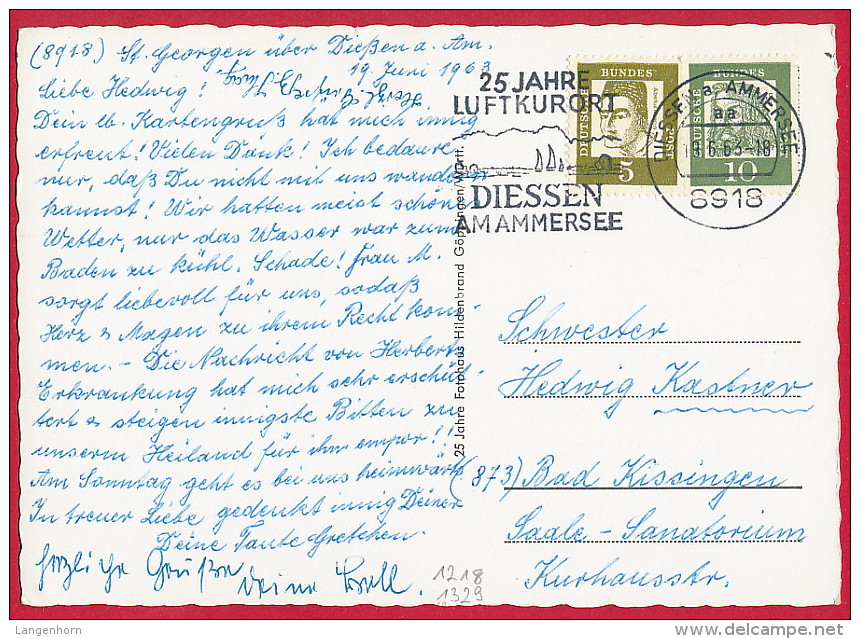 (8918) St. Georgen über Dießen a. Am.
19. Juni 1963
Liebe Hedwig!
Dein lb. Kartengruß hat mich innig
erfreut! Vielen Dank! Ich bedaure
nur, daß Du nicht mit uns wandern
kannst! Wir hatten meist schönes
Wetter, nur das Wasser war zum
Baden zu kühl. Schade! Frau M.
sorgt liebevoll für uns, sodaß
Herz & Magen zu ihrem Recht kom-
men. - Die Nachricht von Herberts
Erkrankung hat mich sehr erschüt-
tert & steigen innigste Bitten zu
unserm Heiland für ihn empor!!
Am Sonntag geht es bei uns heimwärts
In treuer Liebe gedenkt innig Deiner
Deine Tante Gretchen.
herzliche Grüße
Deine
25 Jahre Fotohaus Hildenbrand Göppingen/Württ.
25 JAHRE
LUFTKURORT
DIESSEN
AM AMMERSEE
DEUTSCHE BUNDESPOST
5
DEUTSCHE BUNDESPOST
10
DIESSEN a. AMMERSEE
aa
19.6.63-18
8918
Schwester
Hedwig Kastner
(873) Bad Kissingen
Saale-Sanatorium
Kurhausstr.
1218
1329
Langenhorn
delcampe.net